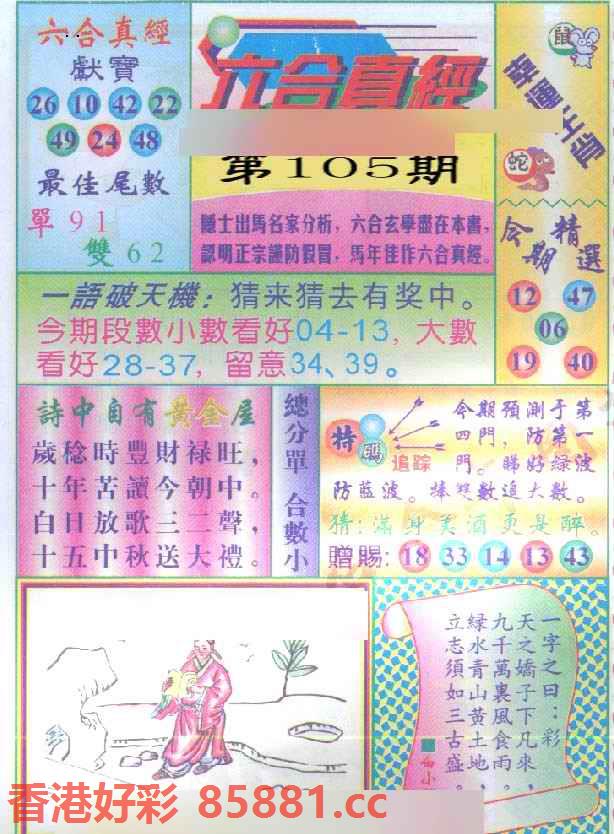 六合真經
獻寶
26 10 42 22
49 24 48
最佳尾數
單 91
雙 62
六合真經
第105期
隱士出馬名家分析，六合玄學盡在本書，
認明正宗謹防假冒，馬年佳作六合真經。
鼠
幸運生肖
蛇
今期精選
12 47
06
19 40
一語破天機：猜来猜去有奖中。
今期段數小數看好04-13，大數
看好28-37，留意34、39。
詩中自有黄金屋
歲稔時豐財禄旺，
十年苦讀今朝中。
白日放歌三二聲，
十五中秋送大禮。
總分單 合數小
特碼
追踪
今期預測于第
四門，防第一
門。睇好绿波
防藍波。捧雙數追大數。
猜：滿身美酒更是醉。
贈賜：18 33 14 13 43
一字之曰：彩
天之嬌子下凡來，
九千萬裏風食雨。
緑水青山黄土地，
立志須如三古盛。
香港好彩 85881.cc